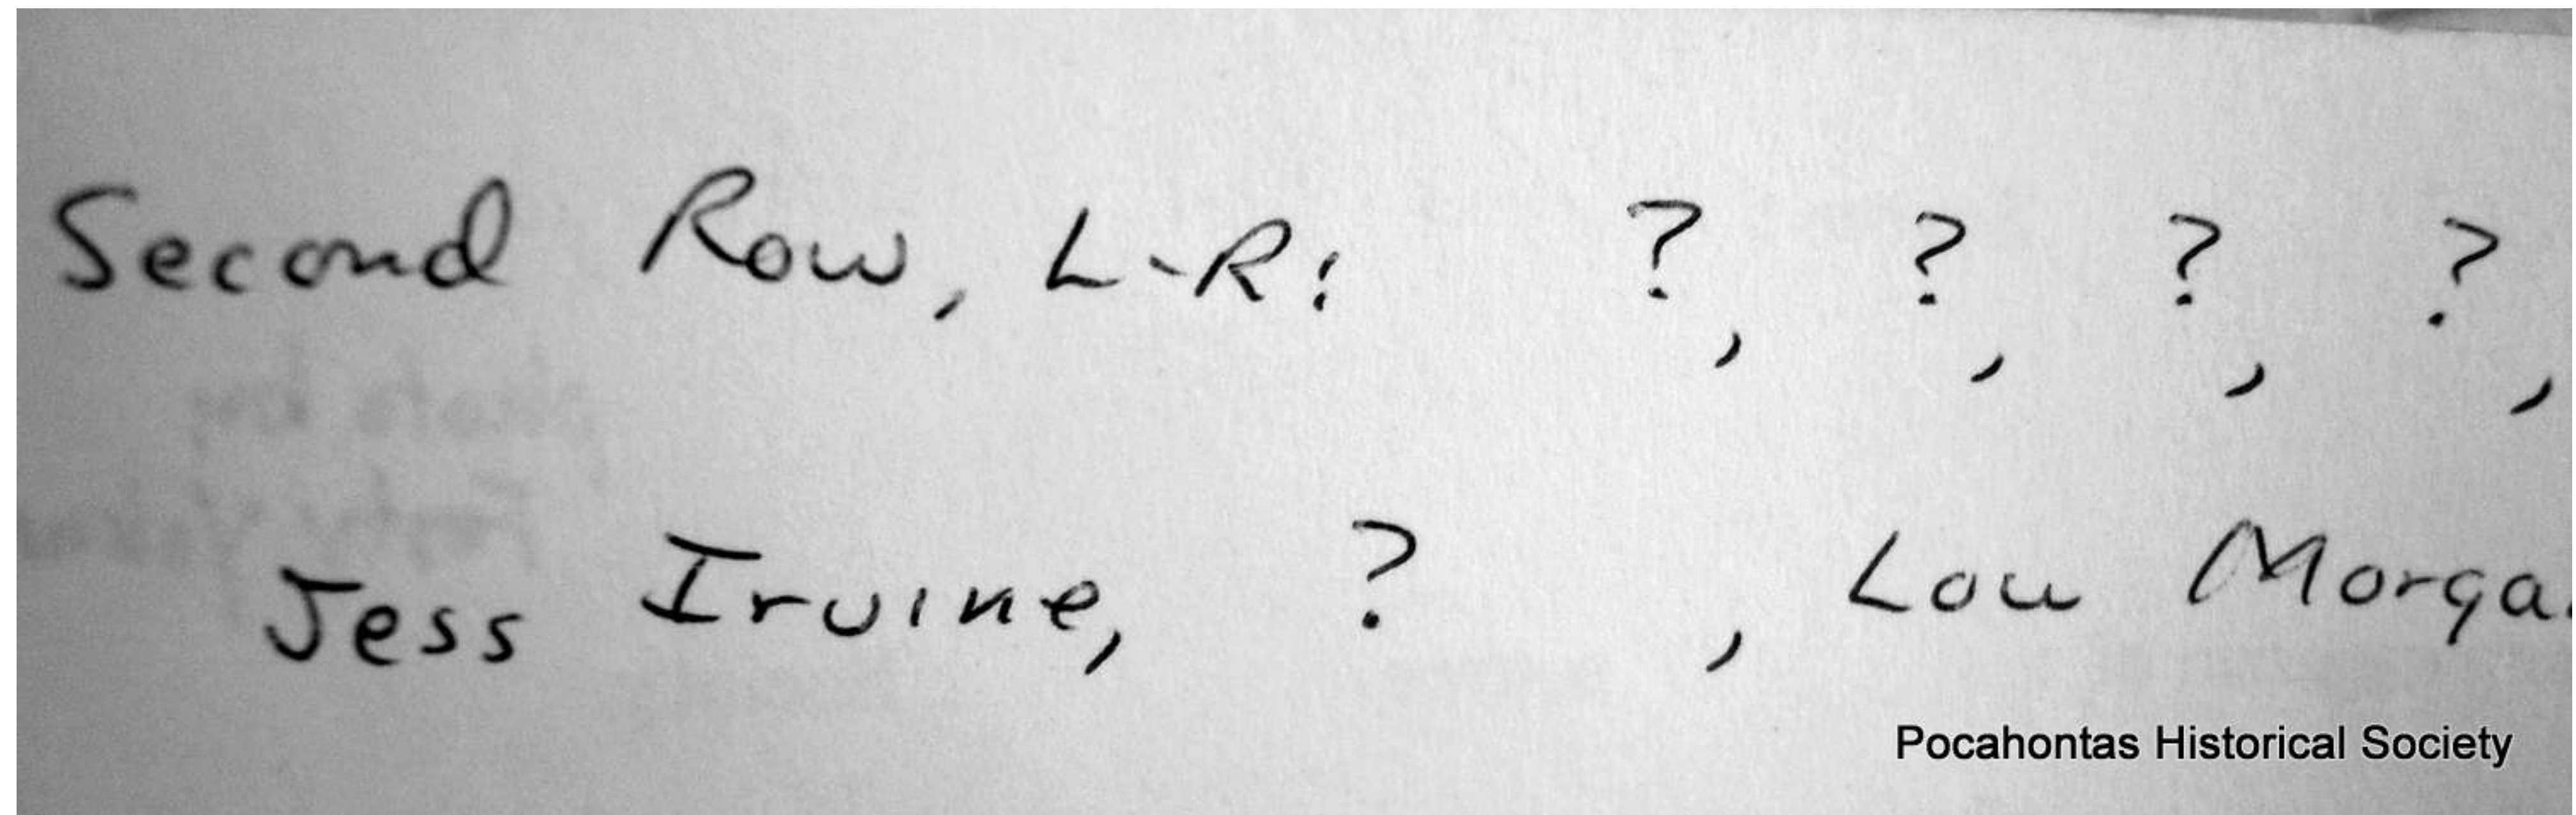 Second Row, L-R: ?, ?, ?, ?,
Jess Irvine, ? , Lou Morga
Pocahontas Historical Society